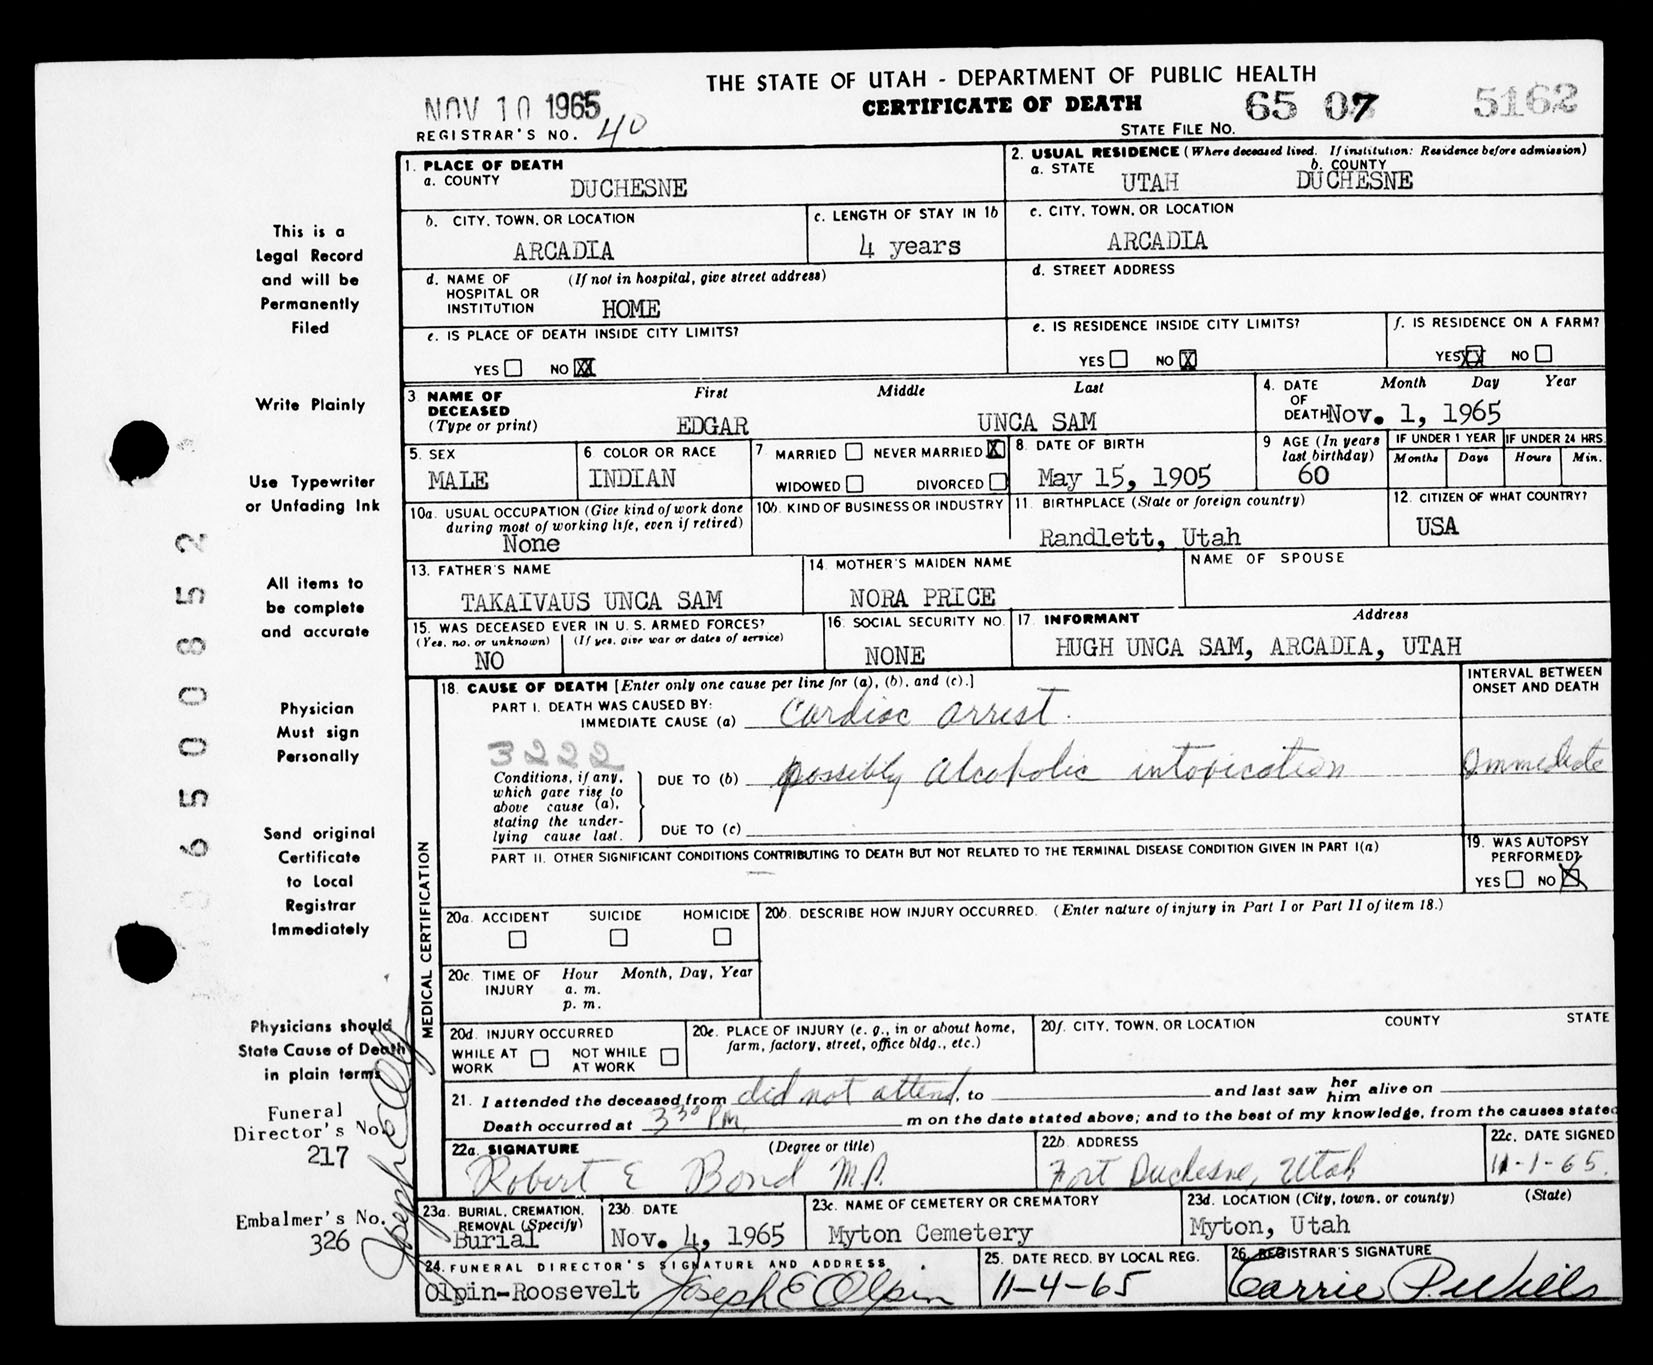 THE STATE OF UTAH - DEPARTMENT OF PUBLIC HEALTH
CERTIFICATE OF DEATH
NOV 10 1965
65 07 5162
REGISTRAR'S NO. 40
STATE FILE No.
1. PLACE OF DEATH
a. COUNTY
DUCHESNE
2. USUAL RESIDENCE (Where deceased lived. If institution: Residence before admission)
a. STATE b. COUNTY
UTAH DUCHESNE
b. CITY, TOWN, OR LOCATION
ARCADIA
c. LENGTH OF STAY IN 1b
4 years
c. CITY, TOWN, OR LOCATION
ARCADIA
d. NAME OF (If not in hospital, give street address)
HOSPITAL OR
INSTITUTION HOME
d. STREET ADDRESS
e. IS PLACE OF DEATH INSIDE CITY LIMITS?
YES NO XX
e. IS RESIDENCE INSIDE CITY LIMITS?
YES NO X
f. IS RESIDENCE ON A FARM?
YES XX NO
3. NAME OF First Middle Last
DECEASED
(Type or print) EDGAR UNCA SAM
4. DATE Month Day Year
OF
DEATH Nov. 1, 1965
5. SEX
MALE
6 COLOR OR RACE
INDIAN
7 MARRIED NEVER MARRIED X
WIDOWED DIVORCED
8 DATE OF BIRTH
May 15, 1905
9 AGE (In years
last birthday)
60
IF UNDER 1 YEAR IF UNDER 24 HRS.
Months Days Hours Min.
10a. USUAL OCCUPATION (Give kind of work done
during most of working life, even if retired)
None
10b. KIND OF BUSINESS OR INDUSTRY
11. BIRTHPLACE (State or foreign country)
Randlett, Utah
12. CITIZEN OF WHAT COUNTRY?
USA
13. FATHER'S NAME
TAKAIVAUS UNCA SAM
14. MOTHER'S MAIDEN NAME
NORA PRICE
NAME OF SPOUSE
15. WAS DECEASED EVER IN U. S. ARMED FORCES?
(Yes, no, or unknown) (If yes, give war or dates of service)
NO
16. SOCIAL SECURITY NO.
NONE
17. INFORMANT Address
HUGH UNCA SAM, ARCADIA, UTAH
MEDICAL CERTIFICATION
18. CAUSE OF DEATH [Enter only one cause per line for (a), (b), and (c).]
INTERVAL BETWEEN
ONSET AND DEATH
PART I. DEATH WAS CAUSED BY:
IMMEDIATE CAUSE (a) Cardiac arrest.
3222
Conditions, if any,
which gave rise to
above cause (a),
stating the under-
lying cause last.
DUE TO (b) possibly alcoholic intoxication Immediate
DUE TO (c)
PART II. OTHER SIGNIFICANT CONDITIONS CONTRIBUTING TO DEATH BUT NOT RELATED TO THE TERMINAL DISEASE CONDITION GIVEN IN PART I(a)
19. WAS AUTOPSY
PERFORMED?
YES NO X
20a. ACCIDENT SUICIDE HOMICIDE
20b. DESCRIBE HOW INJURY OCCURRED. (Enter nature of injury in Part I or Part II of item 18.)
20c. TIME OF Hour Month, Day, Year
INJURY a. m.
p. m.
20d. INJURY OCCURRED
WHILE AT WORK NOT WHILE AT WORK
20e. PLACE OF INJURY (e. g., in or about home,
farm, factory, street, office bldg., etc.)
20f. CITY, TOWN, OR LOCATION COUNTY STATE
21. I attended the deceased from did not attend, to and last saw her him alive on
Death occurred at 3 30 P.M. m on the date stated above; and to the best of my knowledge, from the causes stated
22a. SIGNATURE (Degree or title)
Robert E Bond M.D.
22b. ADDRESS
Fort Duchesne, Utah
22c. DATE SIGNED
11-1-65.
23a. BURIAL, CREMATION,
REMOVAL (Specify)
Burial
23b. DATE
Nov. 4, 1965
23c. NAME OF CEMETERY OR CREMATORY
Myton Cemetery
23d. LOCATION (City, town, or county) (State)
Myton, Utah
24. FUNERAL DIRECTOR'S SIGNATURE AND ADDRESS
Olpin-Roosevelt Joseph E Olpin
25. DATE RECD. BY LOCAL REG.
11-4-65
26. REGISTRAR'S SIGNATURE
Carrie P. Wills
This is a
Legal Record
and will be
Permanently
Filed
Write Plainly
Use Typewriter
or Unfading Ink
All items to
be complete
and accurate
Physician
Must sign
Personally
Send original
Certificate
to Local
Registrar
Immediately
Physicians should
State Cause of Death
in plain terms
Funeral
Director's No.
217
Embalmer's No.
326
Joseph E Olpin
6500852